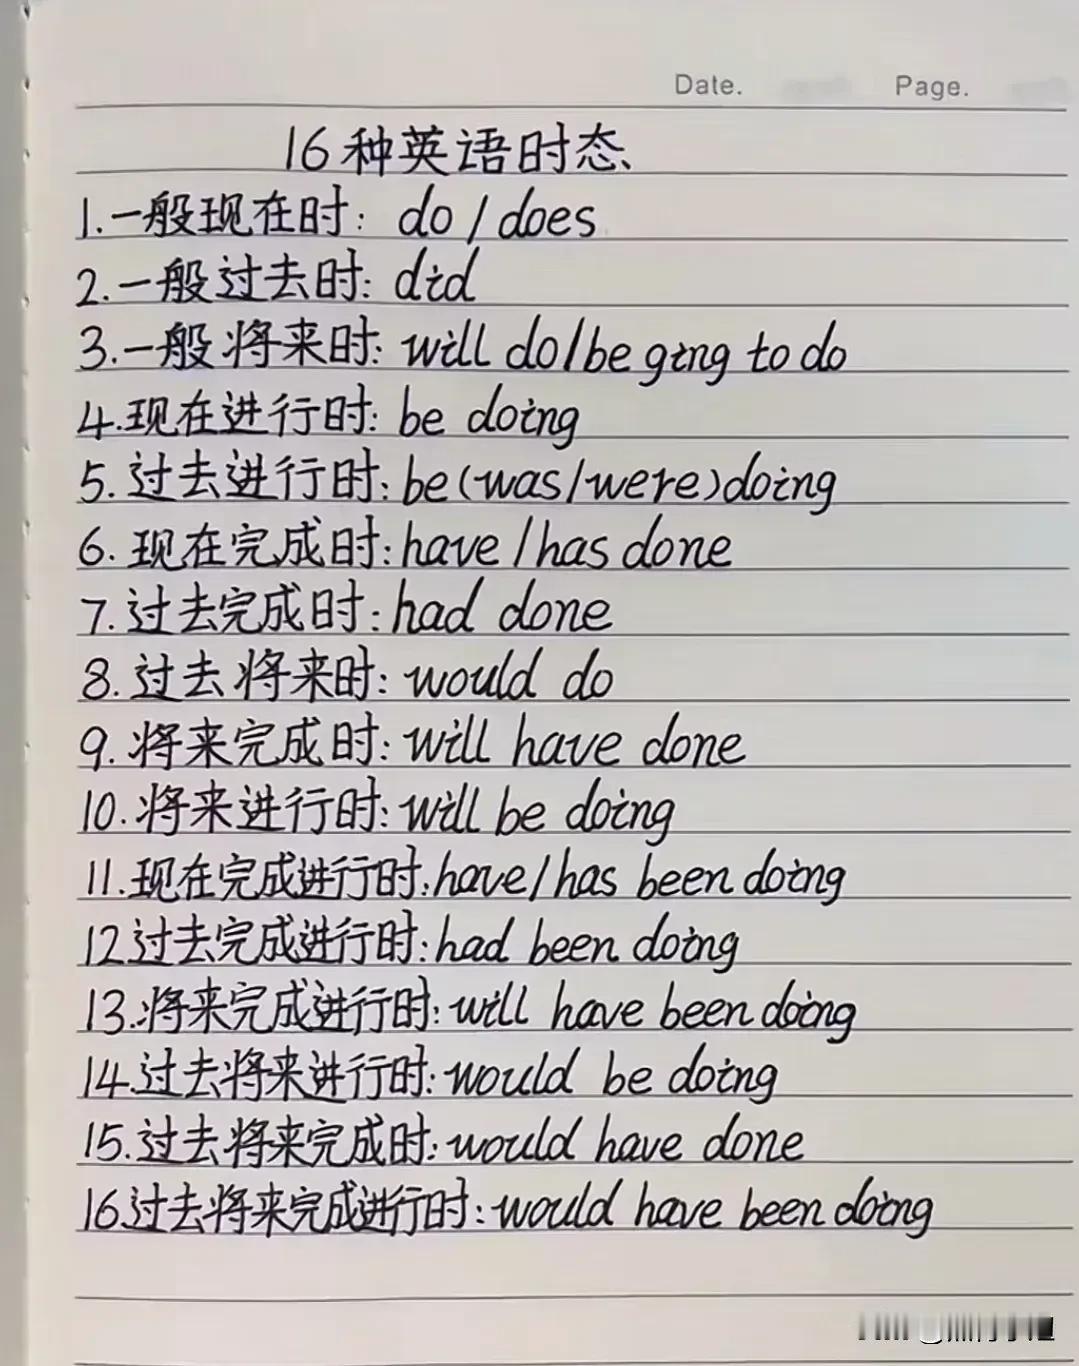 Date. Page.
16种英语时态
1.一般现在时: do / does
2.一般过去时: did
3.一般将来时: will do/be ging to do
4.现在进行时: be doing
5.过去进行时: be(was/were)doing
6.现在完成时: have/has done
7.过去完成时: had done
8.过去将来时: would do
9.将来完成时: will have done
10.将来进行时: will be doing
11.现在完成进行时: have/has been doing
12过去完成进行时: had been doing
13.将来完成进行时: will have been doing
14.过去将来进行时: would be doing
15.过去将来完成时: would have done
16.过去将来完成进行时: would have been doing